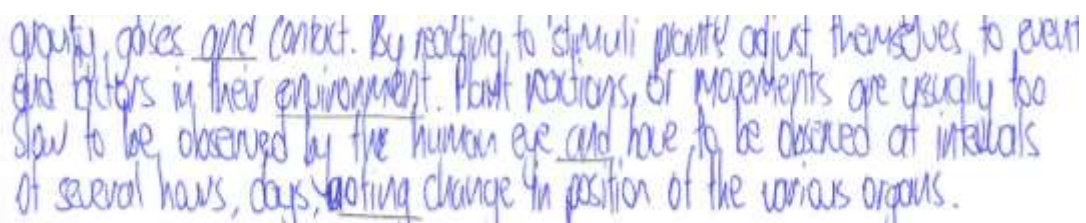 gravity, gases and contact. By reacting to stimuli plants adjust themselves to event
and factors in their environment. Plant reactions, or movements are usually too
slow to be observed by the human eye and have to be observed at intervals
of several hours, days, noting change in position of the various organs.